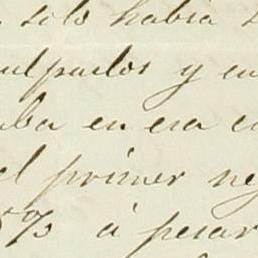 solo habia
culpados y en
ba en esa
el primer
5% á pesar